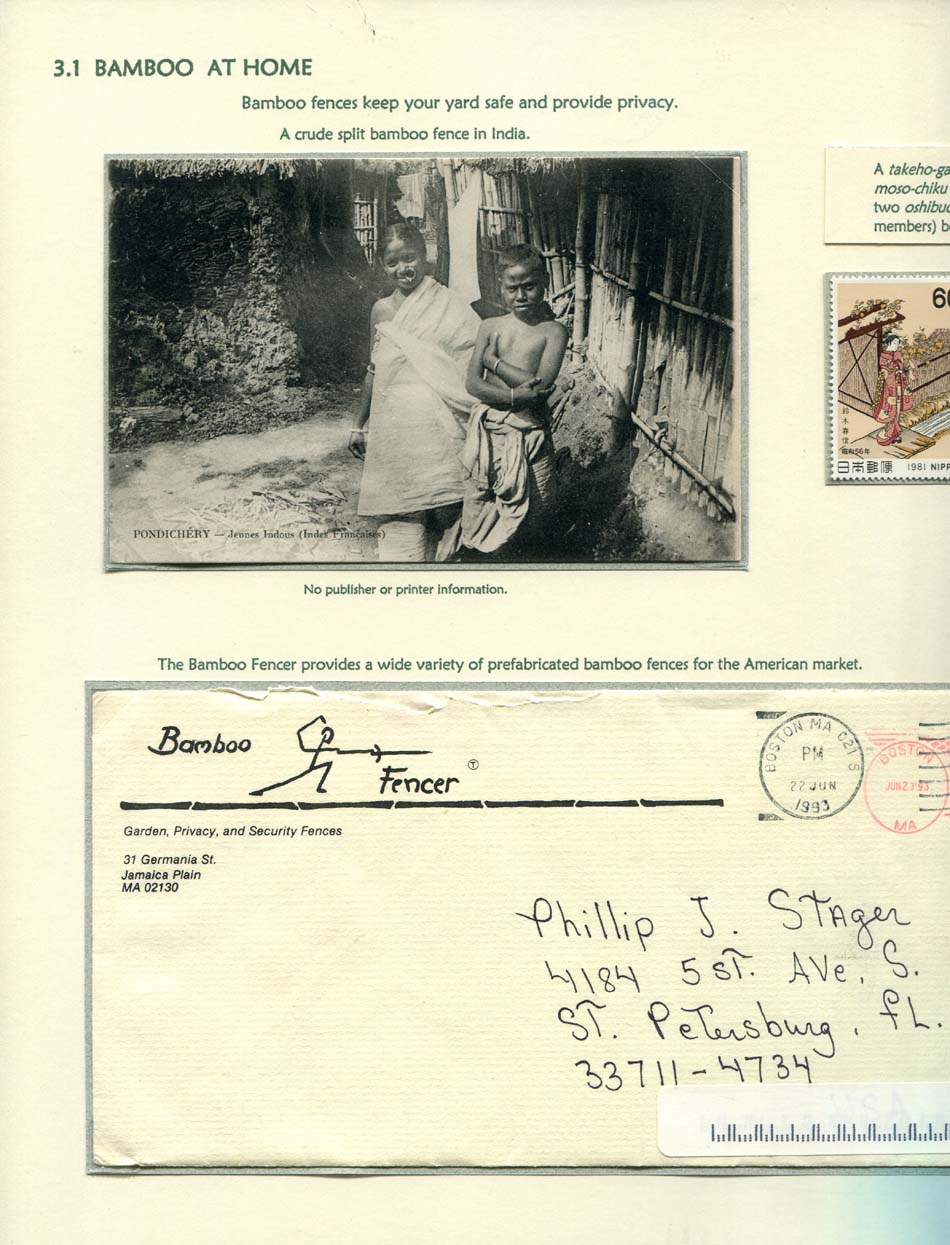 3.1 BAMBOO AT HOME
Bamboo fences keep your yard safe and provide privacy.
A crude split bamboo fence in India.
PONDICHÉRY — Jeunes Indous (Indes Françaises)
No publisher or printer information.
A takeho-ga
moso-chiku
two oshibuc
members) b
60
鈴木春信
昭和56年
日本郵便 1981 NIPP
The Bamboo Fencer provides a wide variety of prefabricated bamboo fences for the American market.
Bamboo
Fencer T
Garden, Privacy, and Security Fences
31 Germania St.
Jamaica Plain
MA 02130
BOSTON MA 021 S
PM
22 JUN
1993
BOSTON
JUN 23 '93
MA
Phillip J. STAger
4184 5 ST. AVe, S.
ST. PeTersburg, FL.
33711-4734